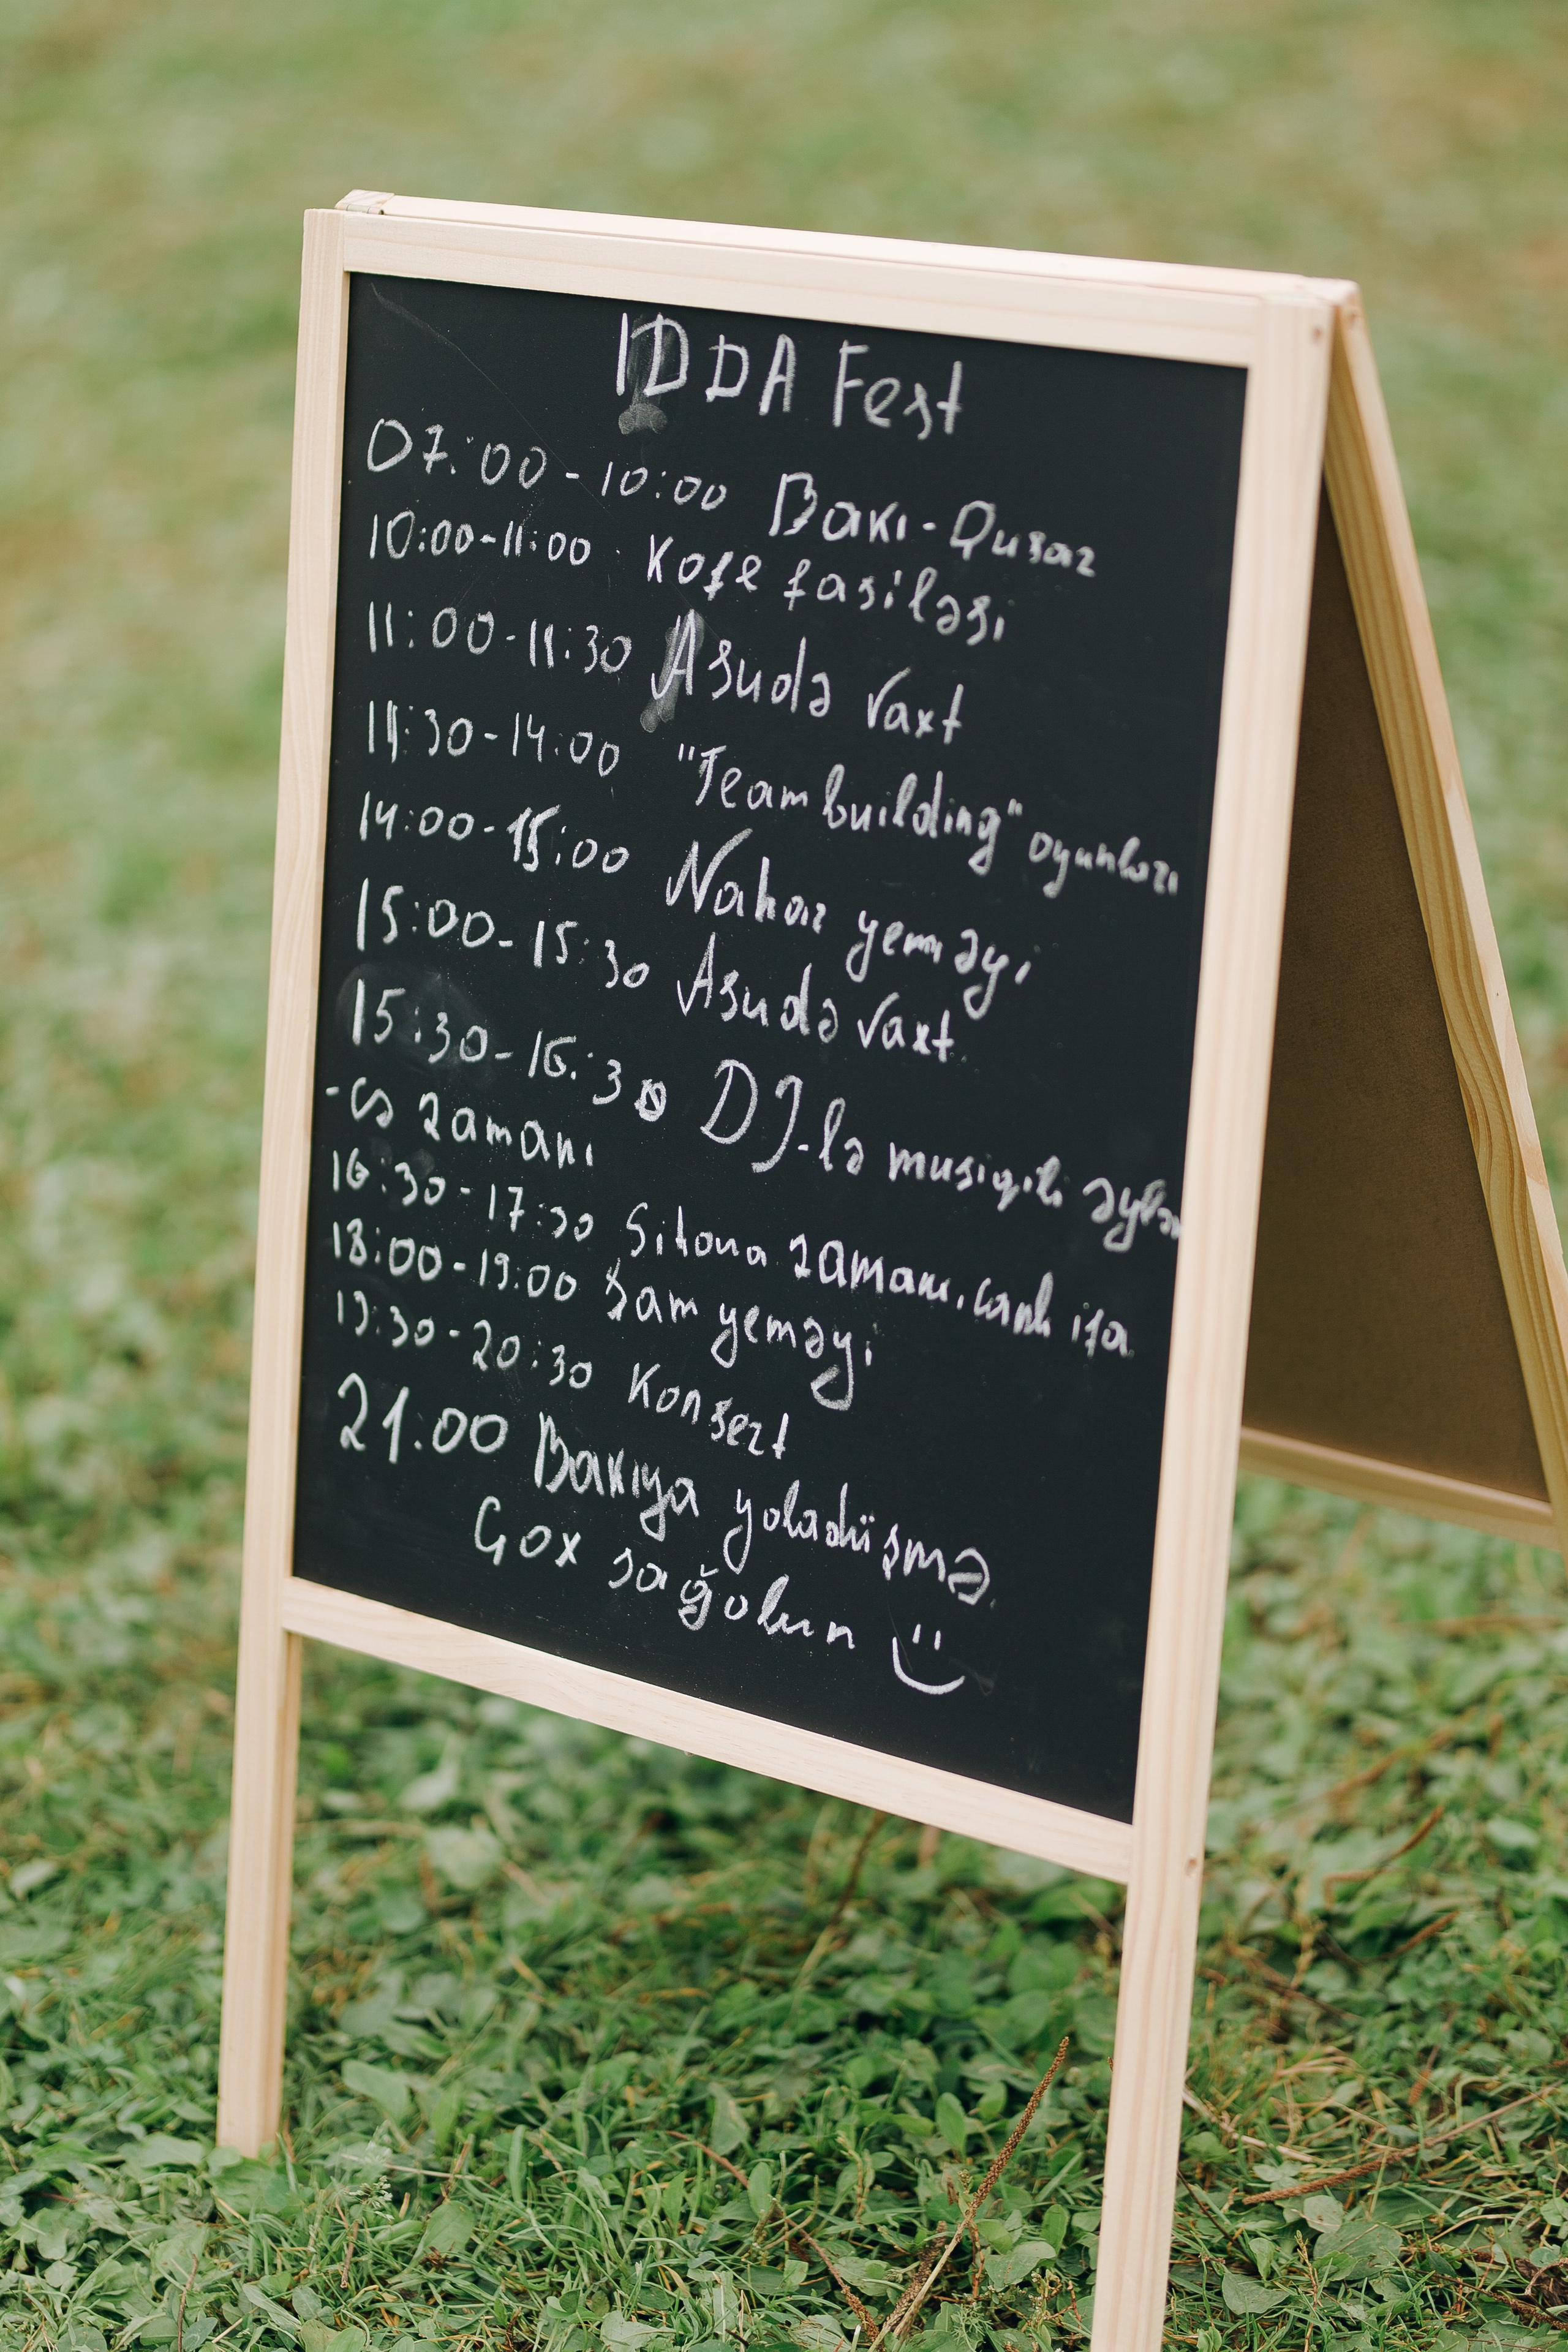 IDDA Fest
07:00-10:00 Bakı-Qusar
10:00-11:00 Kofe fasiləsi
11:00-11:30 Asudə vaxt
11:30-14:00 "Team building" oyunları
14:00-15:00 Nahar yeməyi
15:00-15:30 Asudə vaxt
15:30-16:30 DJ-lə musiqili əylən
-cə zamanı
16:30-17:30 zamanı, canlı ifa
18:00-19:00 Şam yeməyi
19:30-20:30 Konsert
21:00 Bakıya yoladüşmə
Çox sağolun